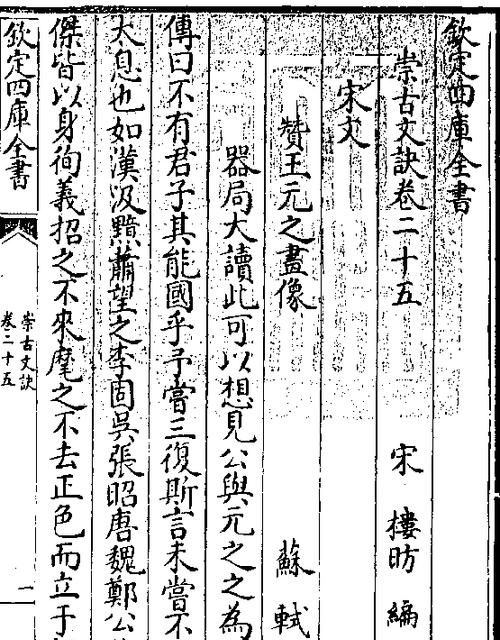 欽定四庫全書
崇古文訣卷二十五
宋 樓昉 編
宋文
贊王元之畫像 蘇軾
器局大讀此可以想見公與元之之為
傳曰不有君子其能國乎予嘗三復斯言未嘗不
太息也如漢汲黯蕭望之李固吳張昭唐魏鄭公
傑皆以身徇義招之不來麾之不去正色而立于
欽定四庫全書
崇古文訣
卷二十五
一